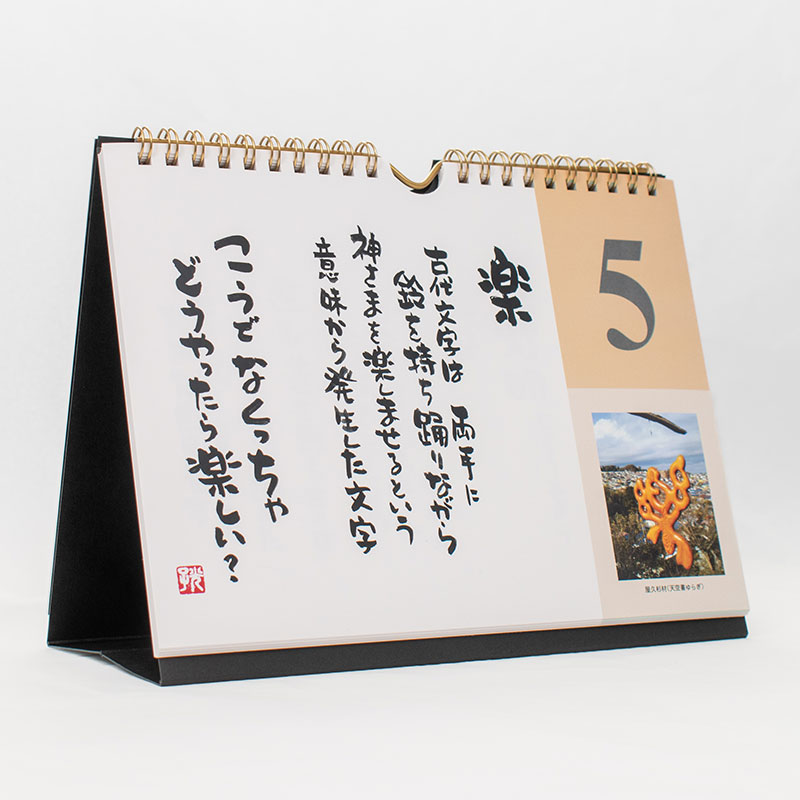 楽
古代文字は 両手に
鈴を持ち踊りながら
神さまを楽しませるという
意味から発生した文字
こうでなくっちゃ
どうやったら楽しい?
5
屋久杉材(天空書ゆらぎ)